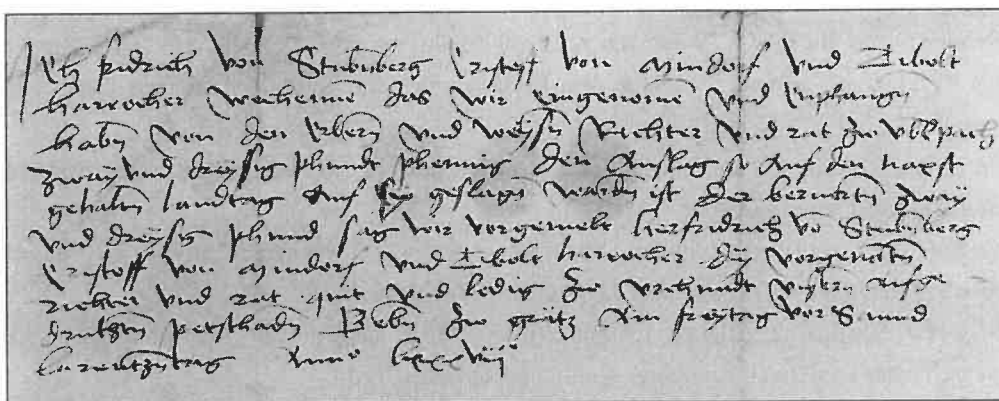 Ich fridrich von Stubmberg Cristoff von Mindorf vnd Tibolt
harrocher bechennen das wir Eingenomen vnd Emphangn
habn von den Erbern vnd weysn Richter vnd rat zw
zway vnd dreyssig phundt phennig den Anslag so Auf den naxst
gehaltn landtag Auf Sy geslagn wardn ist der beruertn zway
vnd dreysig phund sag wir vorgemelt her fridrich vo Stubmberg
Cristoff von Mindorf vnd Tibolt harrocher dy vorgenantn
richter vnd rat quit vnd ledig zw vrchundt vnsern Aufge
druktn petschadn Gebn zw grätz Am freytag vor Sannd
larentzntag Anno lxxxviii